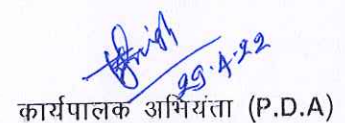 29.4.22
कार्यपालक अभियंता (P.D.A)